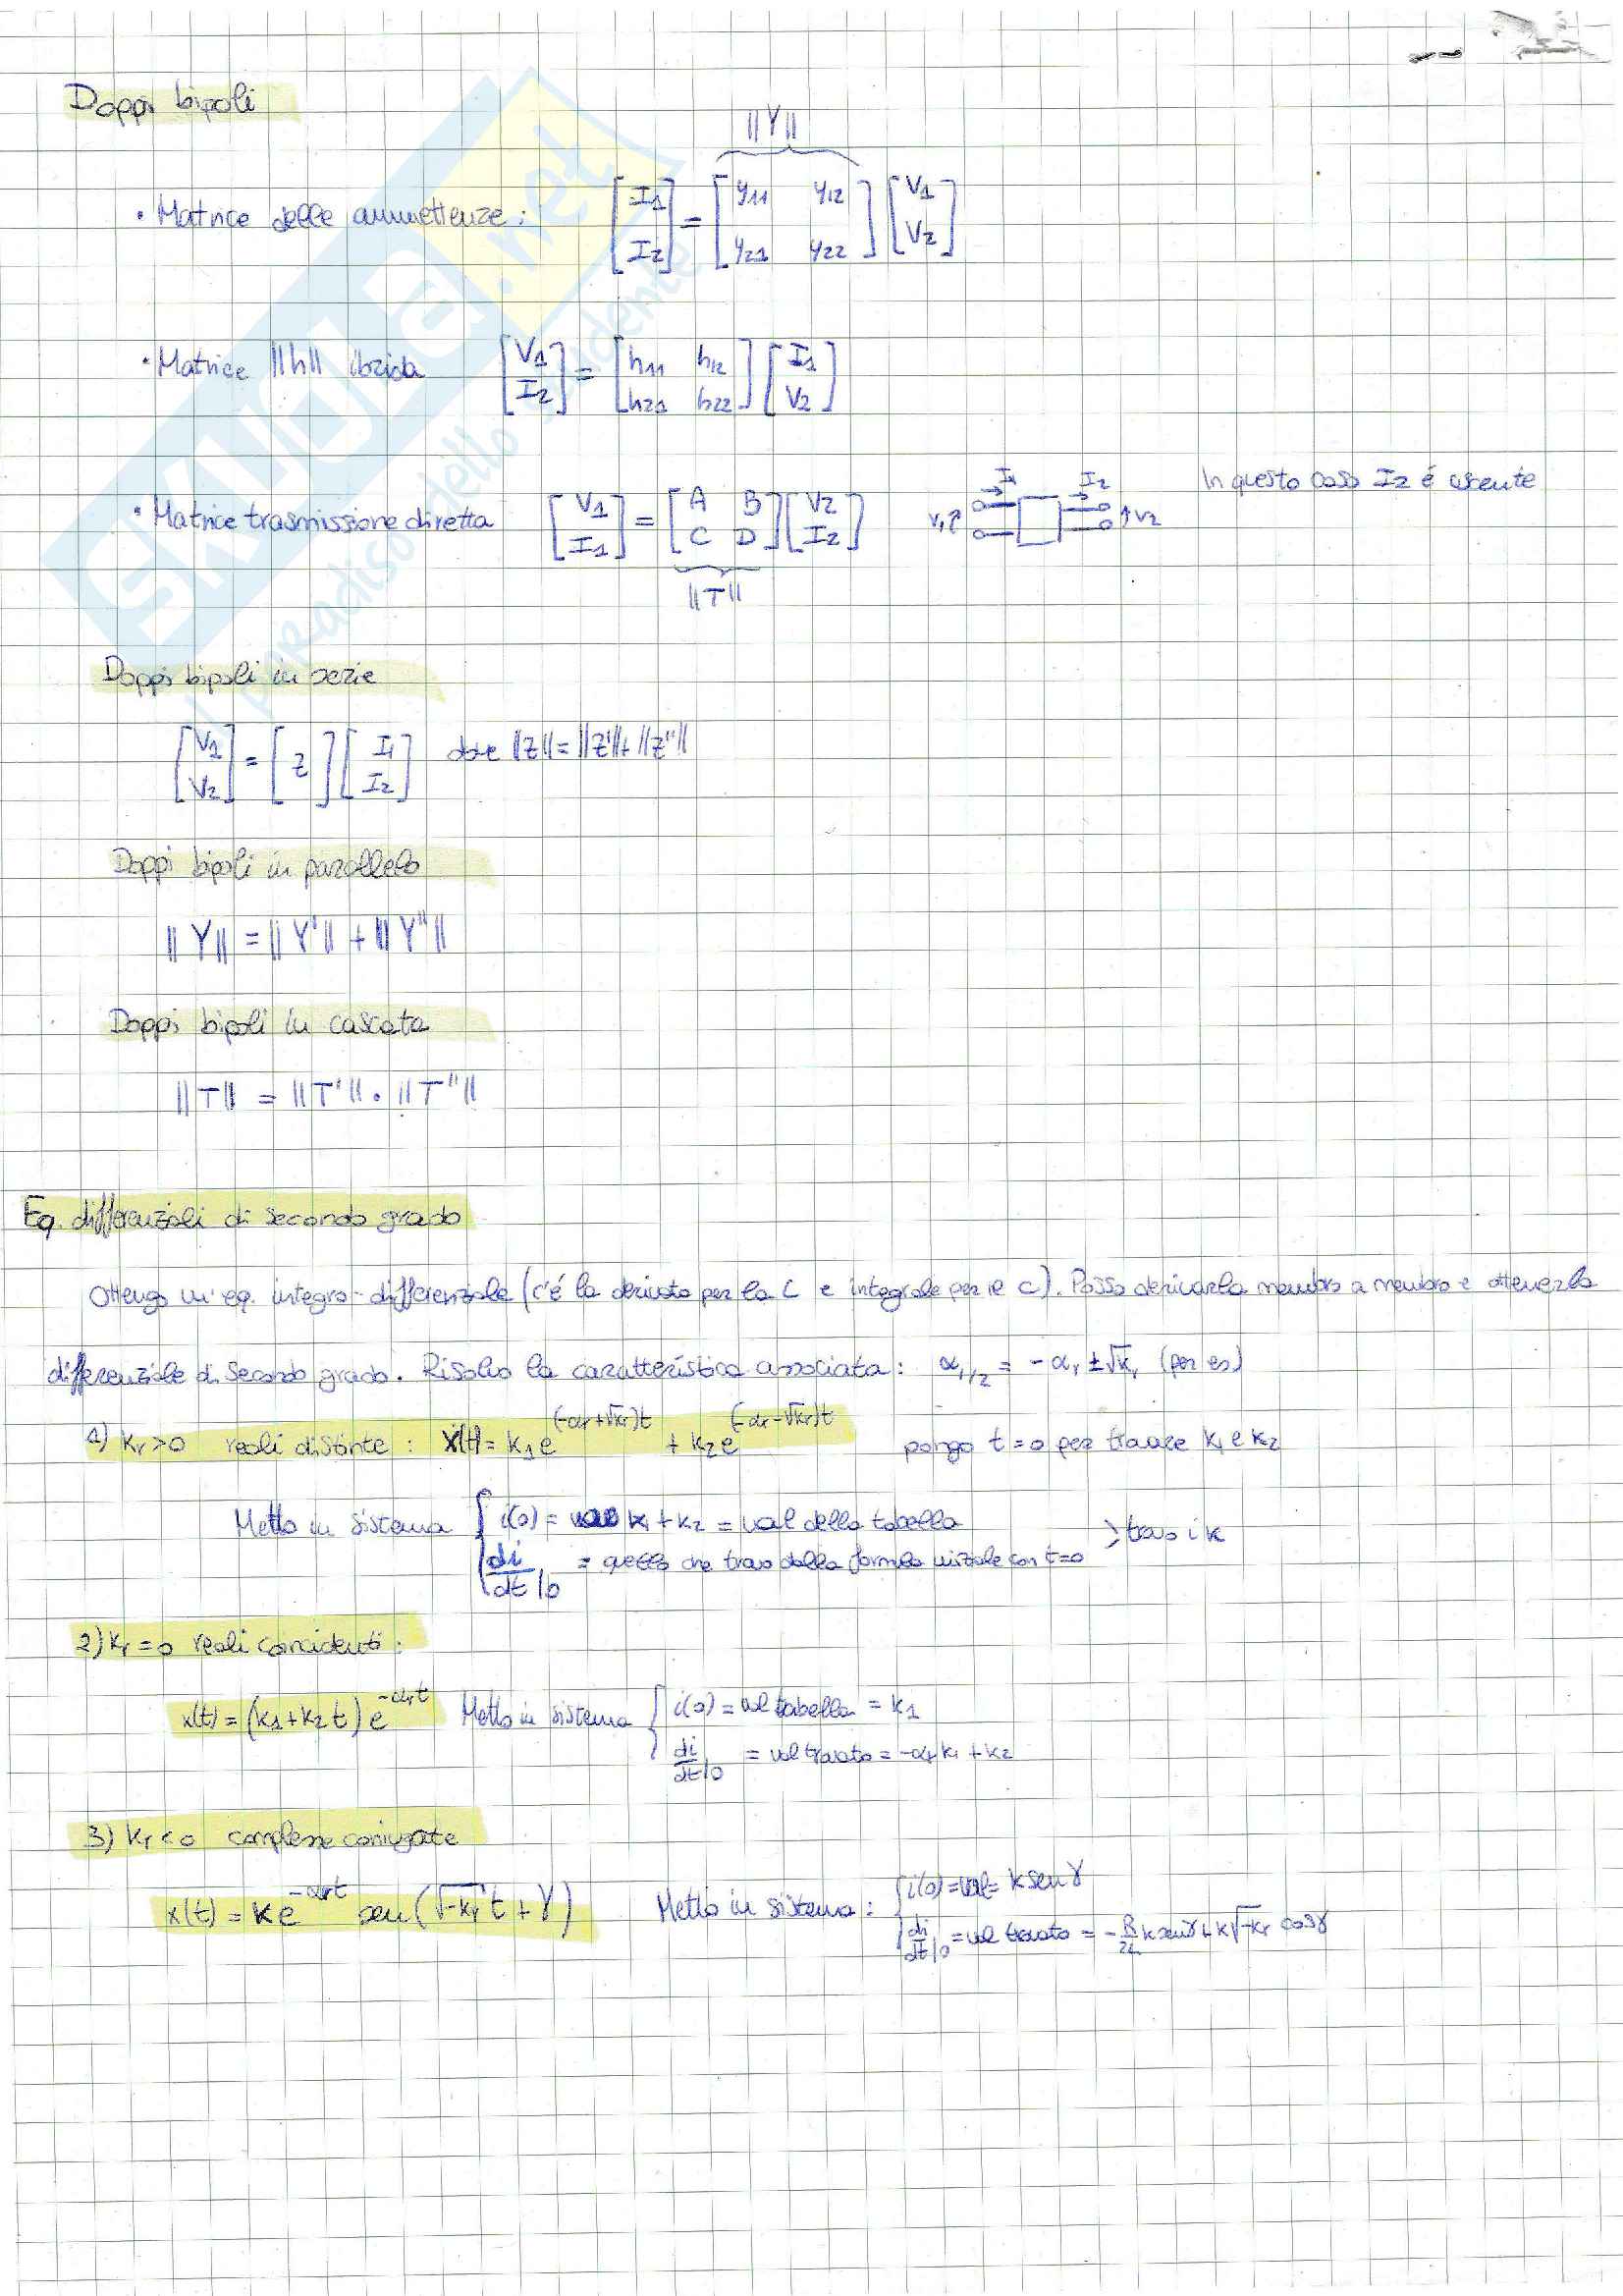 Doppi bipoli
||Y||
• Matrice delle ammettenze: [I1 I2] = [y11 y12 y21 y22] [V1 V2]
• Matrice ||h|| ibrida [V1 I2] = [h11 h12 h21 h22] [I1 V2]
• Matrice trasmissione diretta [V1 I1] = [A B C D] [V2 I2] I1 I2 V1 V2 In questo caso I2 é uscente
||T||
Doppi bipoli in serie
[V1 V2] = [Z] [I1 I2] dove ||Z|| = ||Z'|| + ||Z''||
Doppi bipoli in parallelo
||Y|| = ||Y'|| + ||Y''||
Doppi bipoli in cascata
||T|| = ||T'|| • ||T''||
Eq. differenziali di secondo grado
Ottengo un'eq. integro-differenziale (c'é la derivata per la L e integrale per il C). Posso derivarla membro a membro e ottenerla
differenziale di secondo grado. Risolvo la caratteristica associata: α1/2 = -αr ± √kr (per es)
1) kr>0 reali distinte: x(t) = k1 e^(-αr+√kr)t + k2 e^(-αr-√kr)t pongo t=0 per trovare k1 e k2
Metto in sistema { i(0) = k1 + k2 = val della tabella
di/dt|0 = quello che trovo dalla formula iniziale con t=0 > trovo i k
2) kr=0 reali coincidenti:
x(t) = (k1+k2t) e^-αrt Metto in sistema { i(0) = val tabella = k1
di/dt|0 = val trovato = -αr k1 + k2
3) kr<0 complesse coniugate
x(t) = k e^-αrt sen(√-kr t + γ) Metto in sistema: { i(0) = val = k sen γ
di/dt|0 = val trovato = -R/2L k sen γ + k√-kr cos γ
SKUOLA.net
il paradiso dello studente